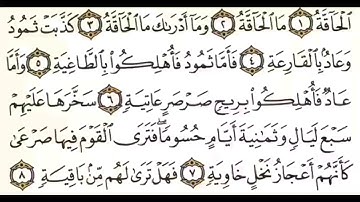 ٱلۡحَآقَّةُ ١ مَا ٱلۡحَآقَّةُ ٢ وَمَآ أَدۡرَىٰكَ مَا ٱلۡحَآقَّةُ ٣ كَذَّبَتۡ ثَمُودُ
وَعَادُۢ بِٱلۡقَارِعَةِ ٤ فَأَمَّا ثَمُودُ فَأُهۡلِكُواْ بِٱلطَّاغِيَةِ ٥ وَأَمَّا
عَادٞ فَأُهۡلِكُواْ بِرِيحٖ صَرۡصَرٍ عَاتِيَةٖ ٦ سَخَّرَهَا عَلَيۡهِمۡ
سَبۡعَ لَيَالٖ وَثَمَٰنِيَةَ أَيَّامٍ حُسُومٗاۖ فَتَرَى ٱلۡقَوۡمَ فِيهَا صَرۡعَىٰ
كَأَنَّهُمۡ أَعۡجَازُ نَخۡلٍ خَاوِيَةٖ ٧ فَهَلۡ تَرَىٰ لَهُم مِّنۢ بَاقِيَةٖ ٨